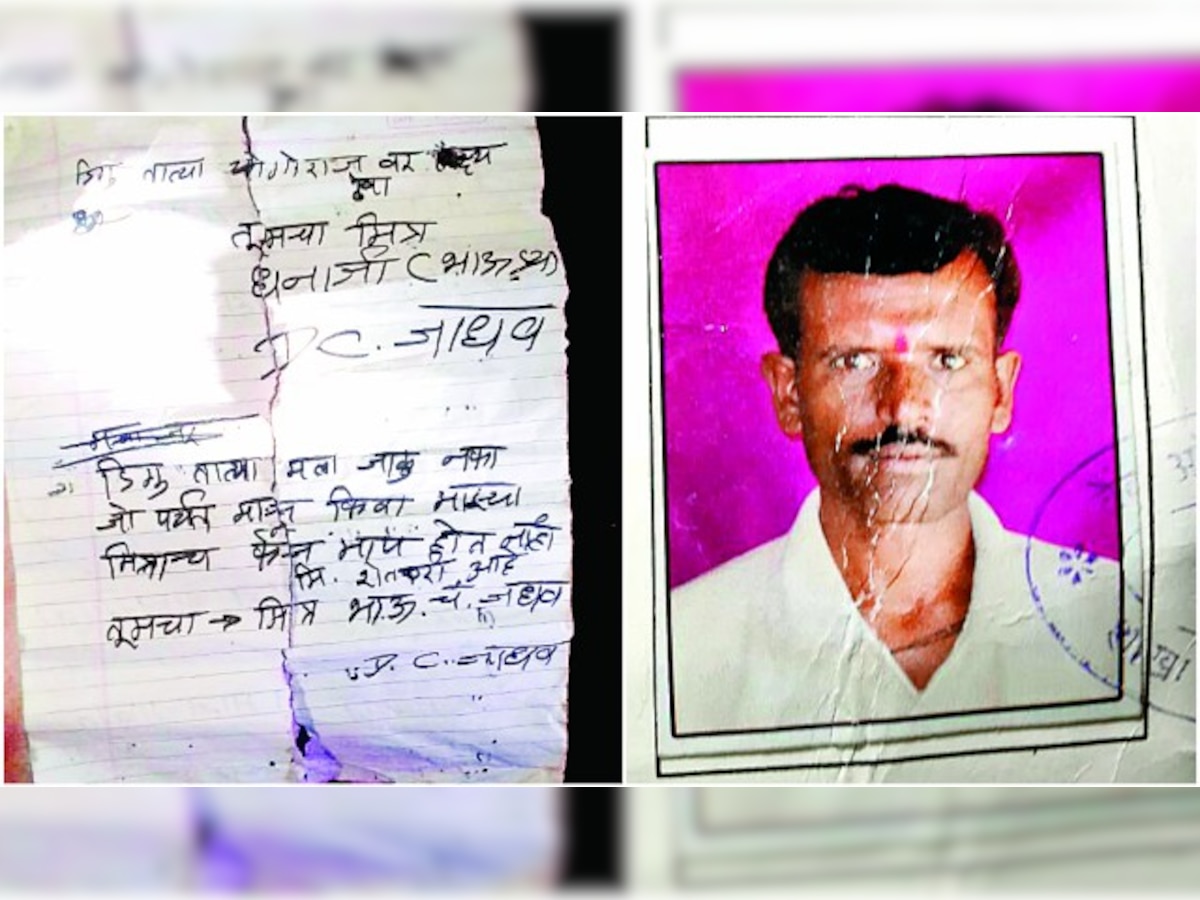 तात्या योगीराज वर लक्ष्य
ठेवा
तूमचा मित्र
धनाजी (भाऊ
D C. जाधव
डिगु तात्या मला जाळु नका
जो पर्यंत माझे किवा माझ्या
मित्राच्य कर्ज माप होत नाही
मि. शेतकरी आहे
तूमचा → मित्र भा.ऊ. चं. जाधव
D. C. जाधव